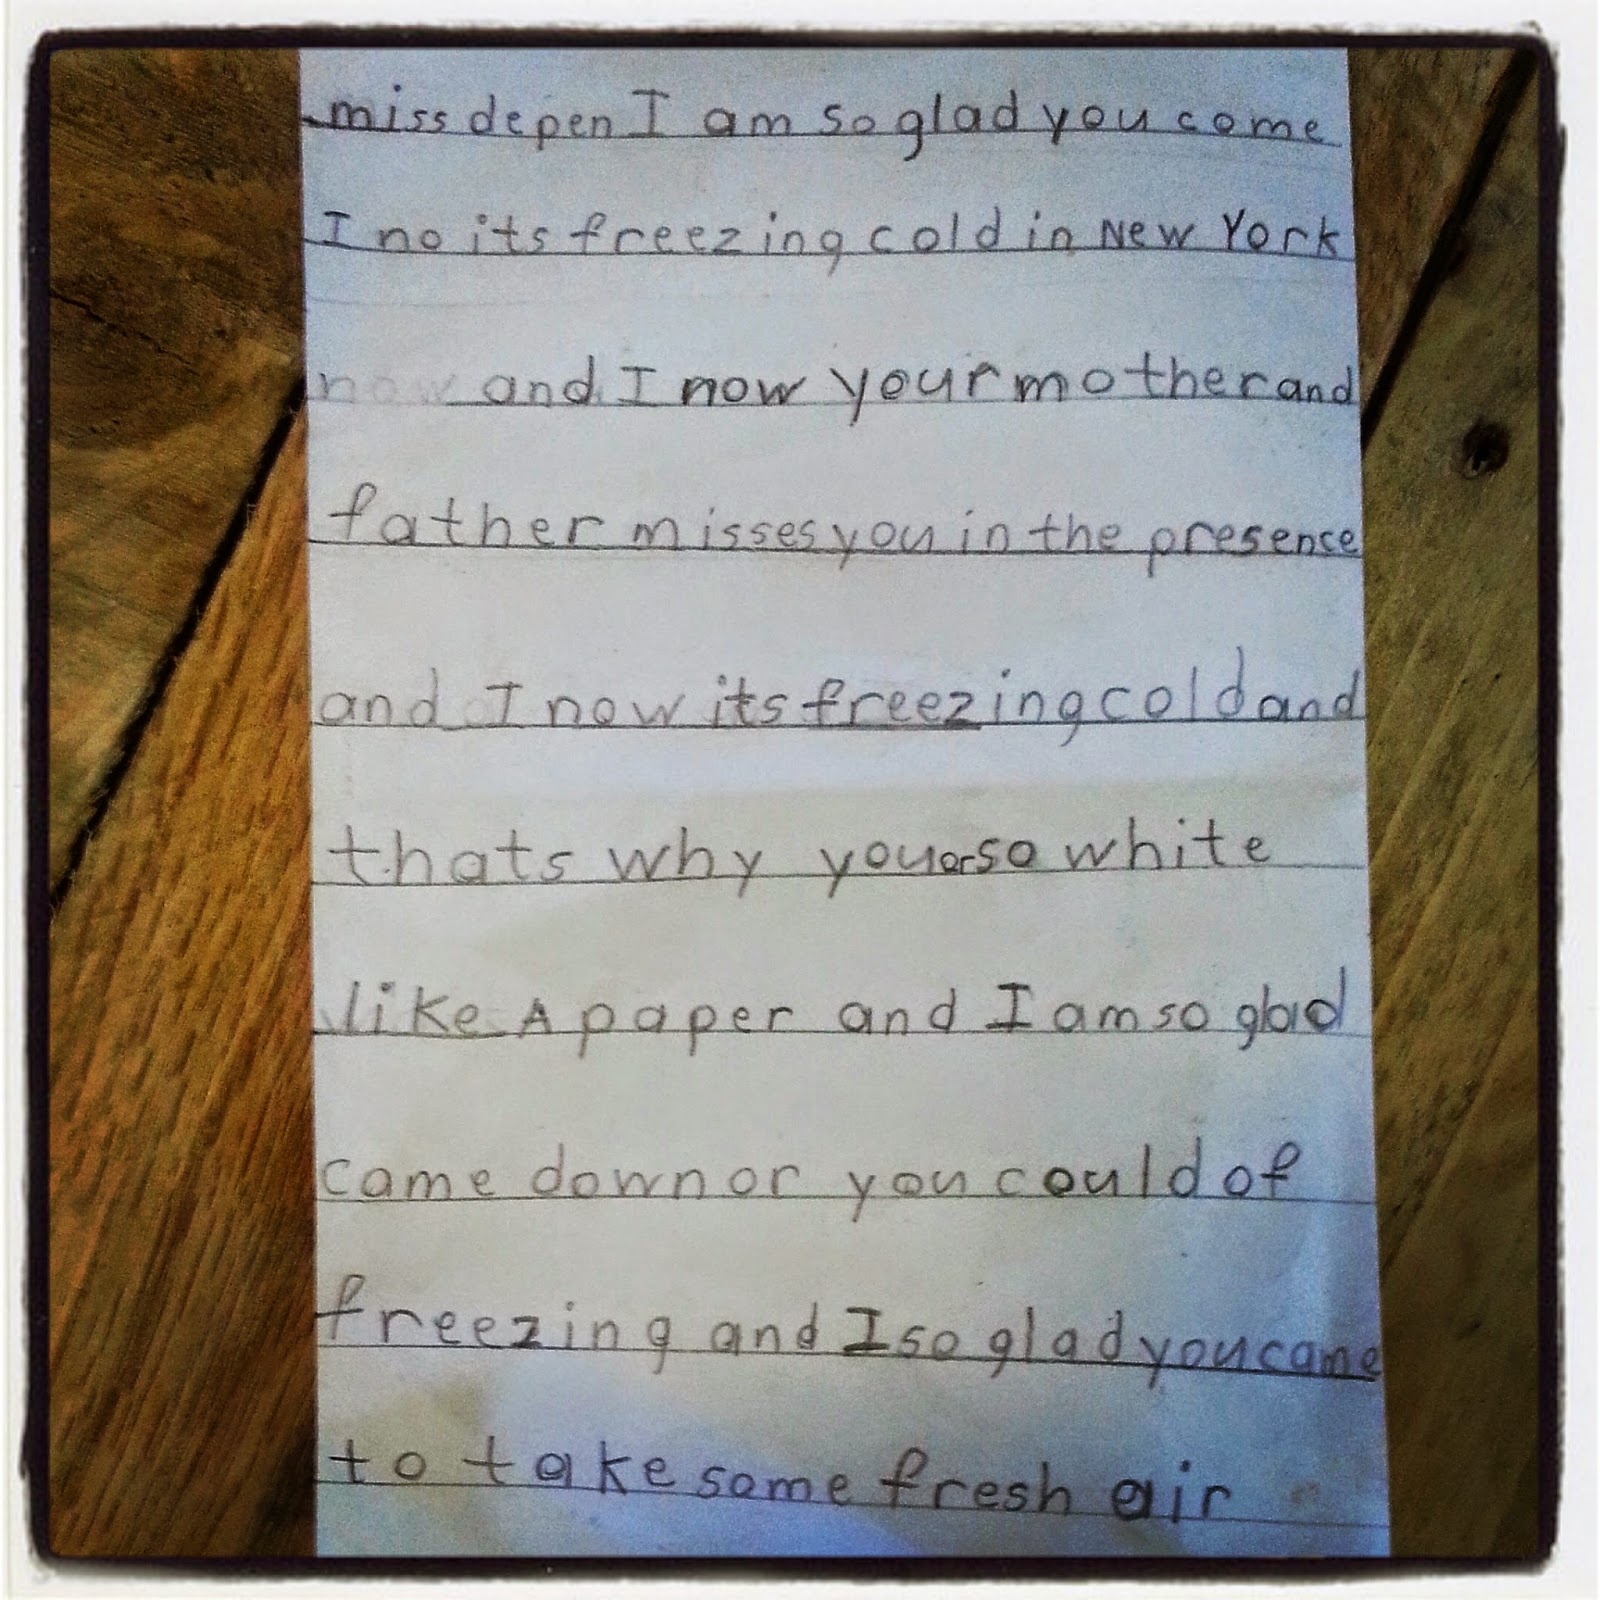 miss depen I am so glad you come
I no its freezing cold in New York
now and I now your mother and
father misses you in the presence
and I now its freezing cold and
thats why you or so white
like A paper and I am so glad
came down or you could of
freezing and I so glad you came
to take some fresh air